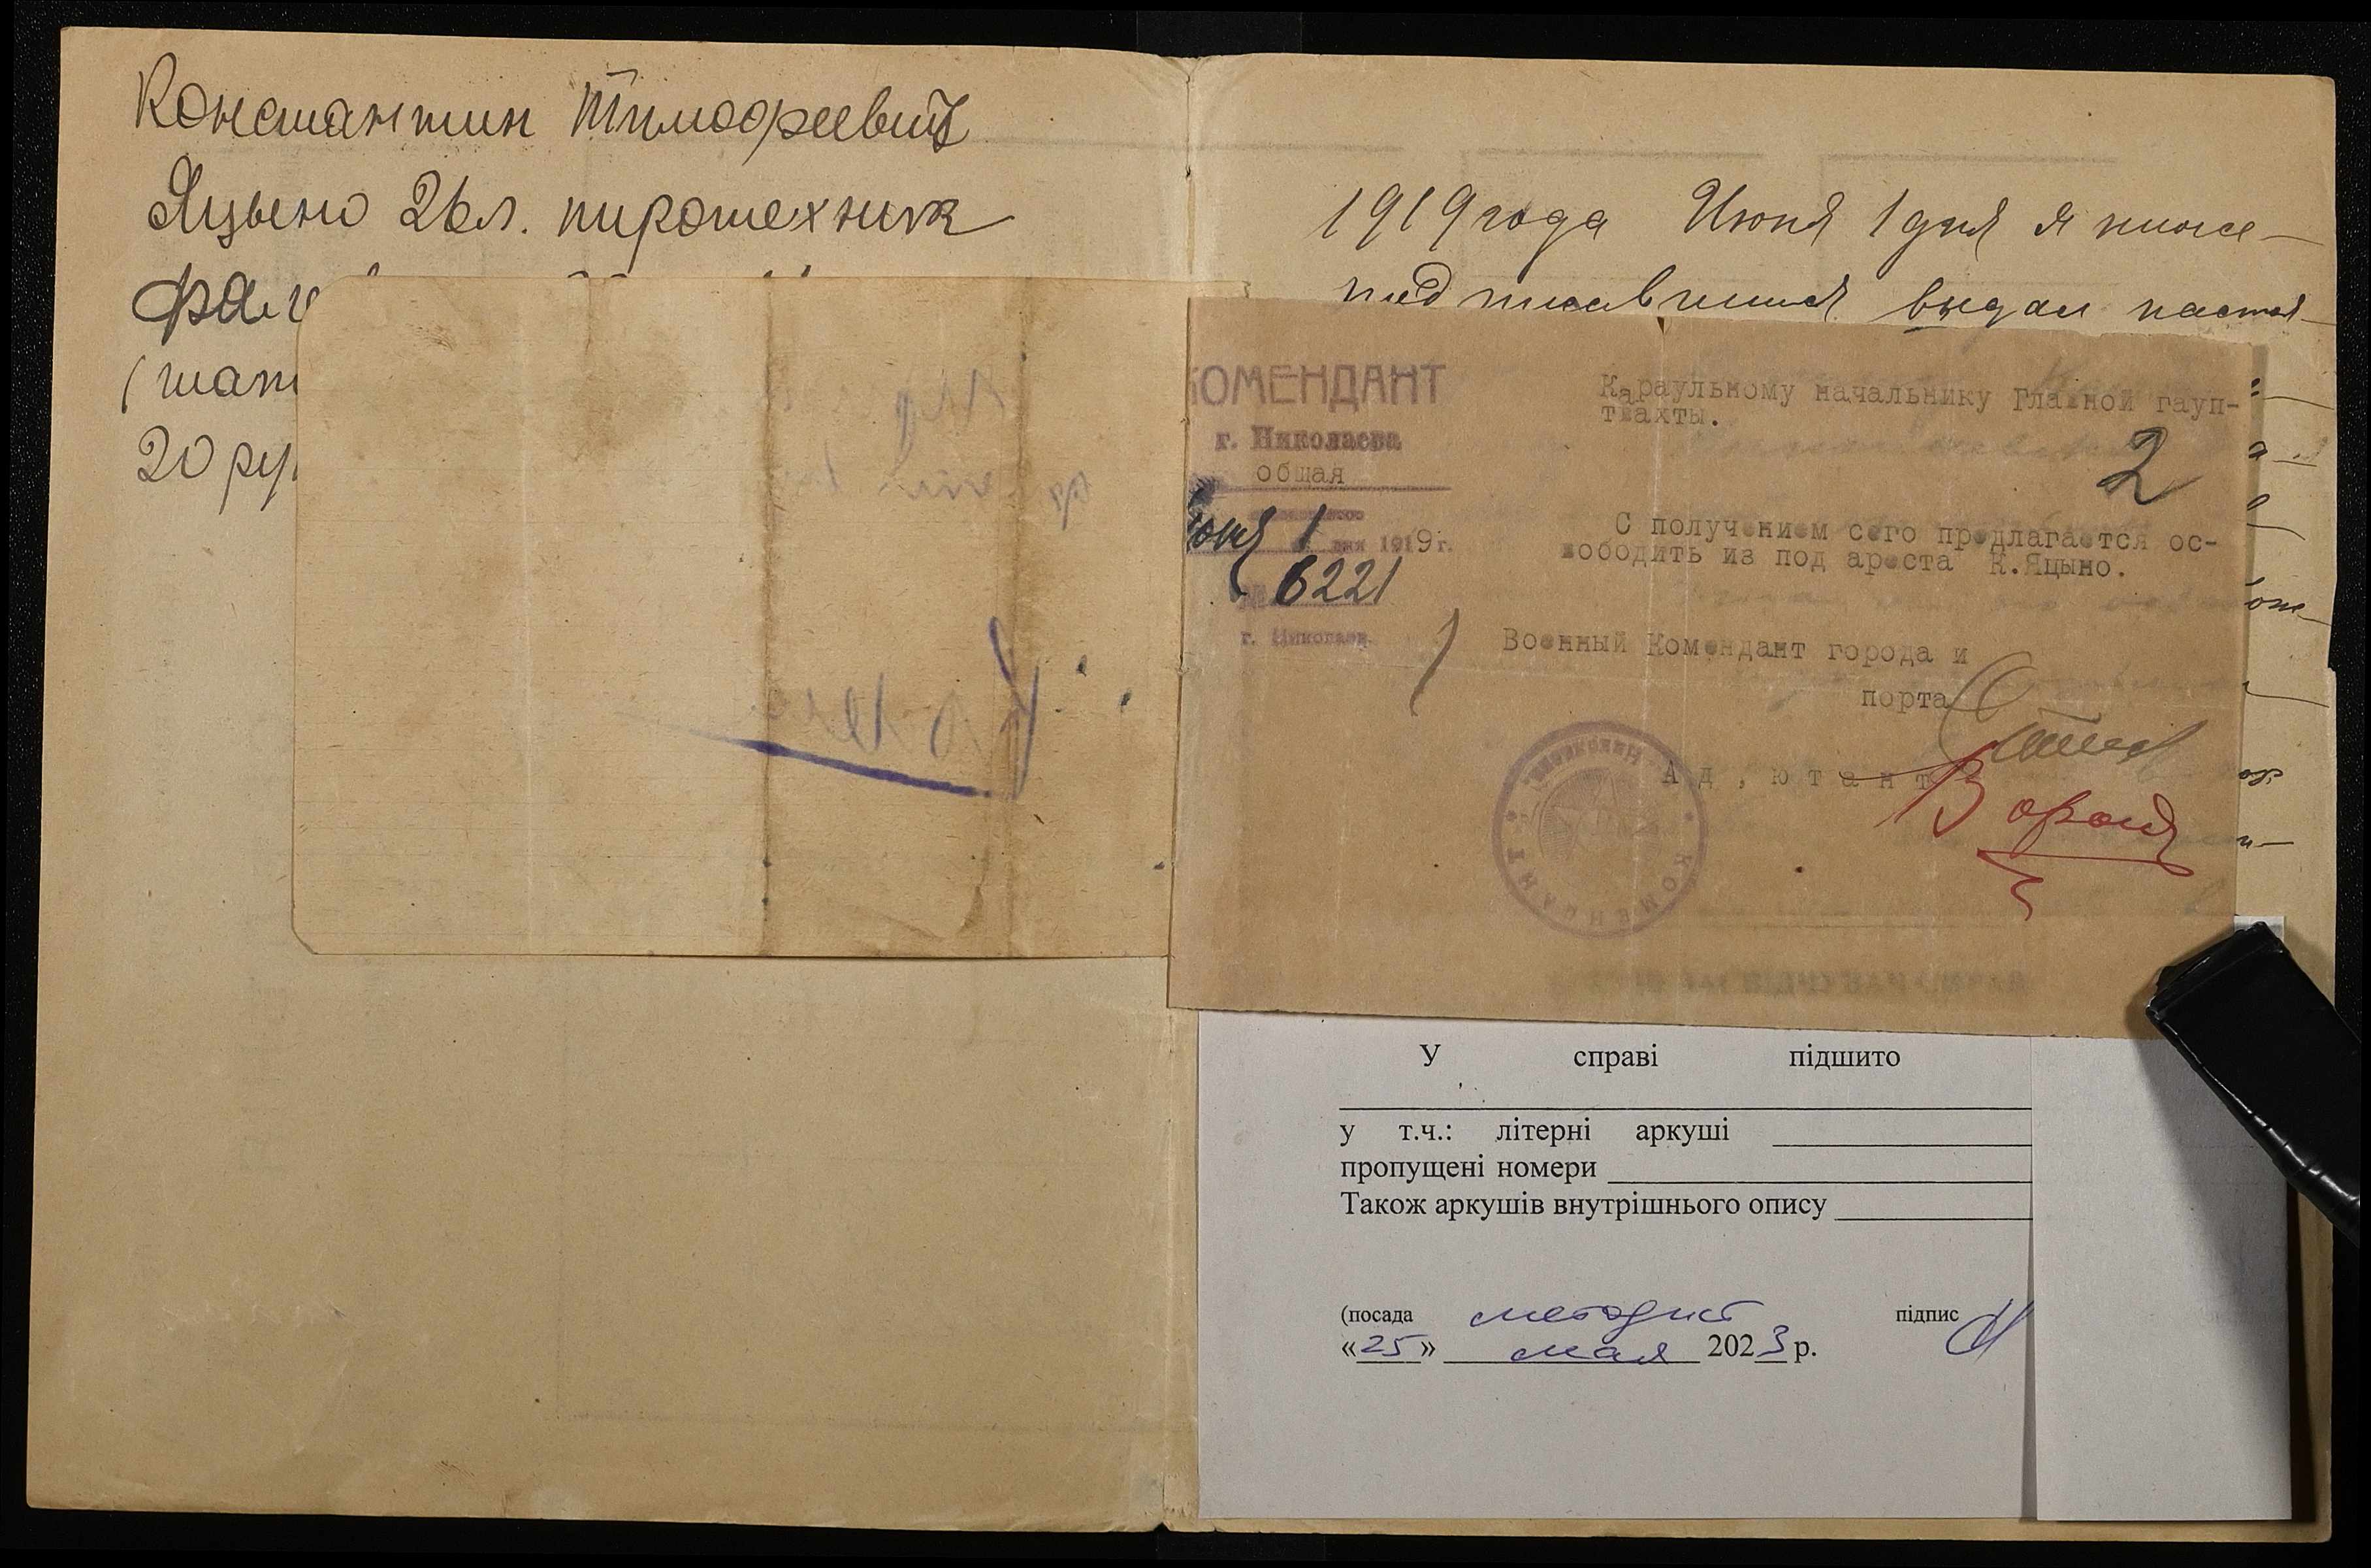 Константин Тимофеевич
Яцыно 26 л. пиротехник
20 ру
1919 года Июня 1 дня я ниже-
подписавшийся выдал настоя-
КОМЕНДАНТ
г. Николаева
общая
Июня 1 дня 1919 г.
6221
г. Николаев.
Караульному начальнику Главной гауп-
твахты.
2
С получением сего предлагается ос-
вободить из под ареста К.Яцыно.
Военный Комендант города и
порта
Ад,ютант
КОМЕНДАНТ
У справі підшито
у т.ч.: літерні аркуші
пропущені номери
Також аркушів внутрішнього опису
(посада методист підпис
«25» мая 2023 р.